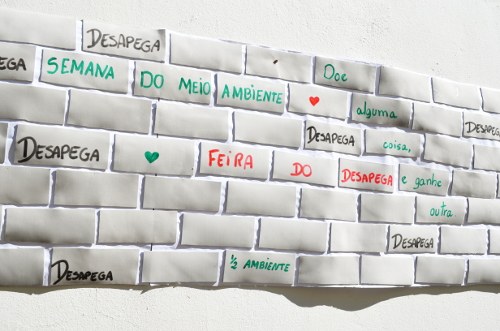 DESAPEGA
SEMANA DO MEIO AMBIENTE
Doe
alguma
DESAPEGA
coisa,
DESAPEGA
FEIRA DO DESAPEGA
e ganhe
outra
DESAPEGA
DESAPEGA
½ AMBIENTE